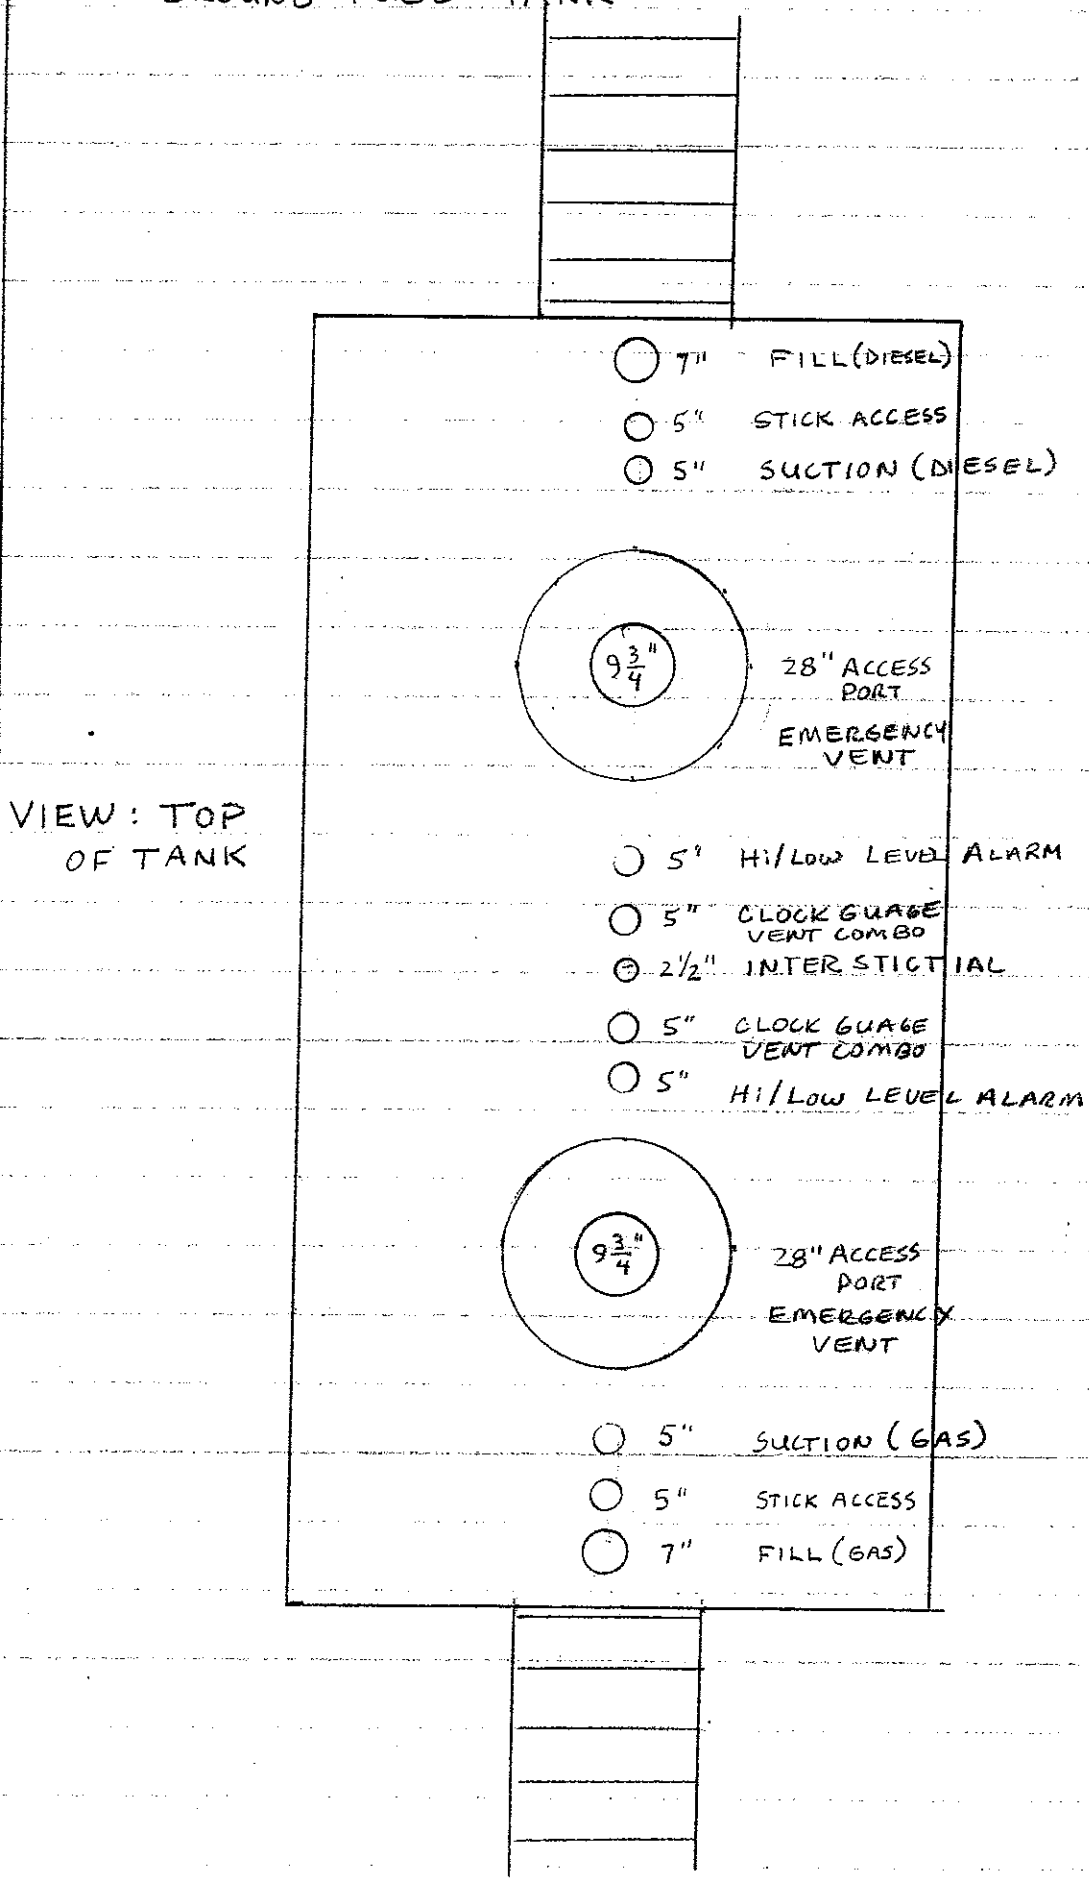 GROUND FUEL TANK
7" FILL (DIESEL)
5" STICK ACCESS
5" SUCTION (DIESEL)
9 3/4" 28" ACCESS
PORT
EMERGENCY
VENT
VIEW: TOP
OF TANK
5" Hi/Low LEVEL ALARM
5" CLOCK GUAGE
VENT COMBO
2 1/2" INTERSTICTIAL
5" CLOCK GUAGE
VENT COMBO
5" Hi/Low LEVEL ALARM
9 3/4" 28" ACCESS
PORT
EMERGENCY
VENT
5" SUCTION (GAS)
5" STICK ACCESS
7" FILL (GAS)